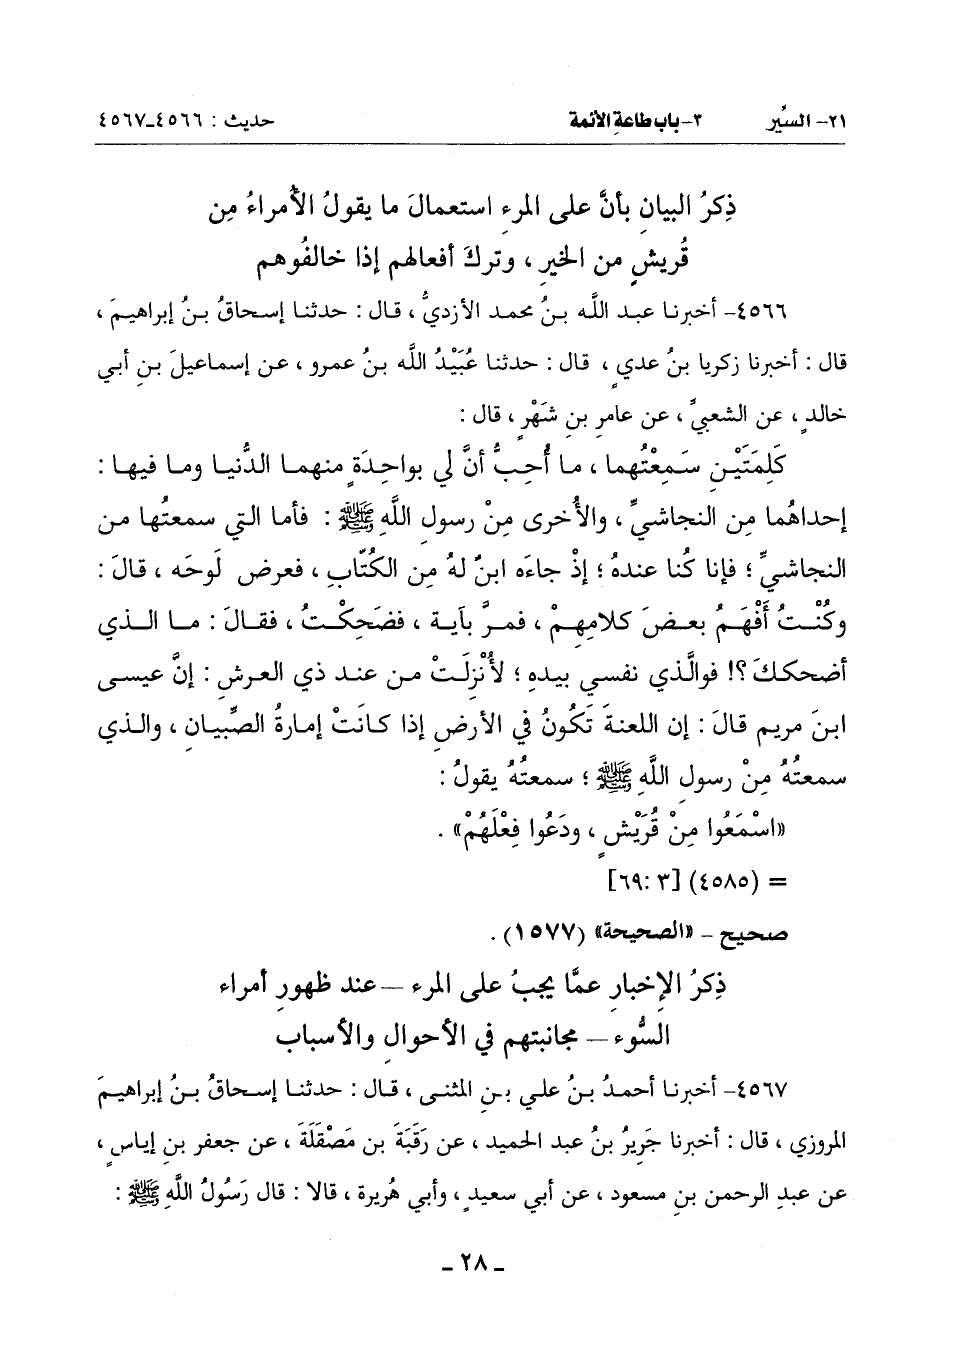 ٢١- السِّير ٣- باب طاعة الأئمة حديث : ٤٥٦٦-٤٥٦٧
ذِكرُ البيانِ بأنَّ على المرءِ استعمالَ ما يقولُ الأُمراءُ مِن
قُريشٍ من الخيرِ ، وتركَ أفعالهم إذا خالفُوهم
٤٥٦٦- أخبرنا عبد اللَّه بنُ محمد الأزديُّ ، قال : حدثنا إسحاقُ بنُ إبراهيمَ ،
قال : أخبرنا زكريا بنُ عدي ، قال : حدثنا عُبَيْدُ اللَّه بنُ عمرو ، عن إسماعيلَ بنِ أبي
خالدٍ ، عن الشعبيِّ ، عن عامرِ بنِ شَهْرٍ ، قال :
كَلِمَتَيْنِ سَمِعْتُهما ، ما أُحِبُّ أنَّ لي بواحِدَةٍ منهما الدُّنيا وما فيها :
إحداهُما مِن النجاشيِّ ، والأُخرى مِنْ رسولِ اللَّهِ ﷺ : فأما التي سمعتُها من
النجاشيِّ ؛ فإنا كُنا عندهُ ؛ إذْ جاءَه ابنٌ لهُ مِن الكُتّابِ ، فعرض لَوحَه ، قالَ :
وكُنْتُ أَفْهَمُ بعضَ كلامِهِمْ ، فمرَّ بآيةٍ ، فضَحِكْتُ ، فقالَ : ما الذي
أضحككَ ؟! فوالَّذي نفسي بيدهِ ؛ لأُنْزِلَتْ من عند ذي العرشِ : إنَّ عيسى
ابنَ مريم قالَ : إن اللعنةَ تَكُونُ في الأرضِ إذا كانَتْ إمارةُ الصِّبيانِ ، والذي
سمعتُهُ مِنْ رسولِ اللَّهِ ﷺ ؛ سمعتُهُ يقولُ :
«اسْمَعُوا مِنْ قُرَيْشٍ ، ودَعُوا فِعْلَهُمْ» .
= (٤٥٨٥) [٣ :٦٩]
صحيح – «الصحيحة» (١٥٧٧) .
ذِكرُ الإخبارِ عمَّا يجبُ على المرء – عند ظهورِ أمراء
السُّوء – مجانبتهم في الأحوالِ والأسباب
٤٥٦٧- أخبرنا أحمدُ بنُ علي بنِ المثنى ، قال : حدثنا إسحاقُ بنُ إبراهيمَ
المروزي ، قال : أخبرنا جَرِيرُ بنُ عبد الحميد ، عن رَقَبَةَ بن مَصْقَلَةَ ، عن جعفر بنِ إياسٍ ،
عن عبدِ الرحمن بنِ مسعود ، عن أبي سعيدٍ ، وأبي هُريرة ، قالا : قال رَسُولُ اللَّهِ ﷺ :
– ٢٨ –